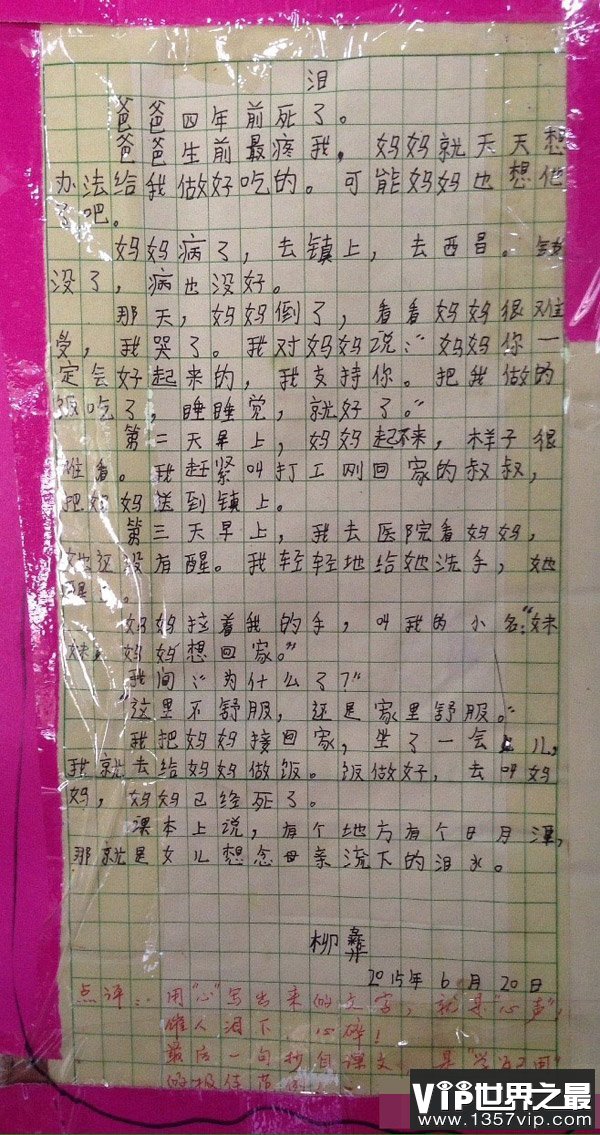 泪
爸爸四年前死了。
爸爸生前最疼我,妈妈就天天想
办法给我做好吃的。可能妈妈也想他
了吧。
妈妈病了,去镇上,去西昌。钱
没了,病也没好。
那天,妈妈倒了,看看妈妈很难
受,我哭了。我对妈妈说:“妈妈你一
定会好起来的,我支持你。把我做的
饭吃了,睡睡觉,就好了。”
第二天早上,妈妈起不来,样子很
难看。我赶紧叫打工刚回家的叔叔,
把妈妈送到镇上。
第三天早上,我去医院看妈妈,
她还没有醒。我轻轻地给她洗手,她
醒了。
妈妈拉着我的手,叫我的小名:“妹
妹,妈妈想回家。”
我问:“为什么了?”
“这里不舒服,还是家里舒服。”
我把妈妈接回家,坐了一会儿,
我就去给妈妈做饭。饭做好,去叫妈
妈,妈妈已经死了。
课本上说,有个地方有个日月潭,
那就是女儿想念母亲流下的泪水。
柳彝
2015年6月20日
点评:用“心”写出来的文字,就是“心声”,
催人泪下,心碎!
最后一句抄自课文,是“学以致用”
的极佳
VIP世界之最
www.1357vip.com